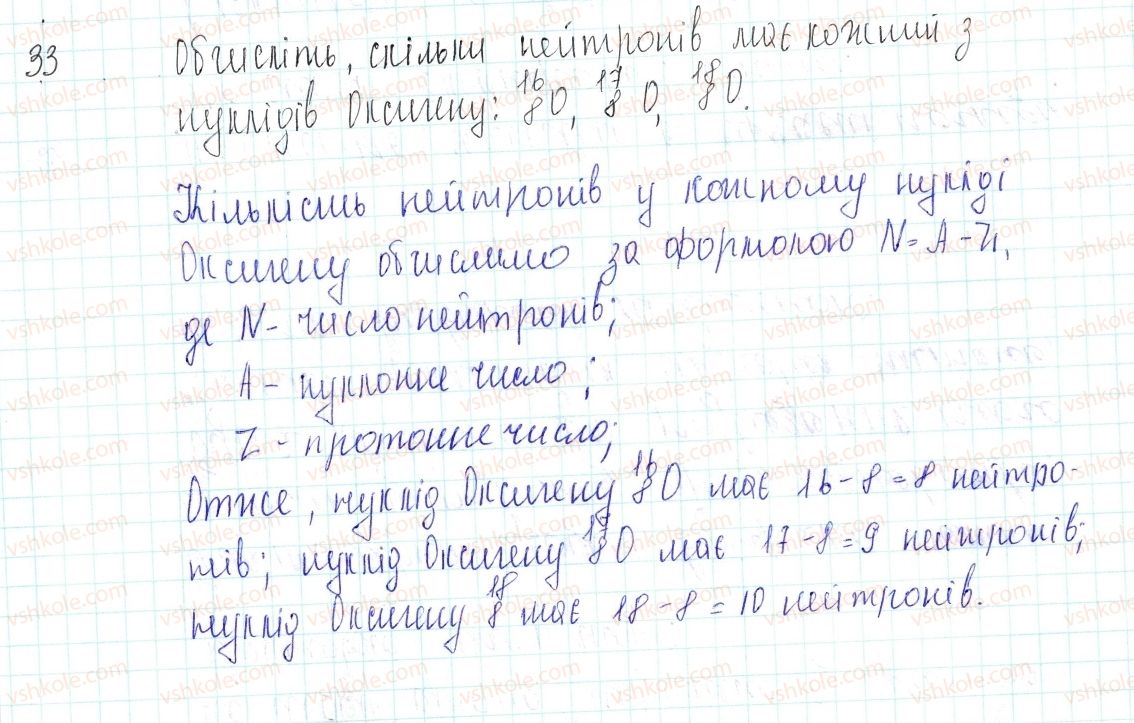 33 Обчисліть, скільки нейтронів має кожний з
нуклідів Оксигену: ¹⁶₈O, ¹⁷₈O, ¹⁸₈O.
Кількість нейтронів у кожному нукліді
Оксигену обчислимо за формолою N=A-Z,
де N- число нейтронів;
A- нуклонне число;
Z- протонне число;
Отже, нуклід Оксигену ¹⁶₈O має 16-8=8 нейтро-
нів; нуклід Оксигену ¹⁷₈O має 17-8=9 нейтронів;
нуклід Оксигену ¹⁸₈ має 18-8=10 нейтронів.
vshkole.com